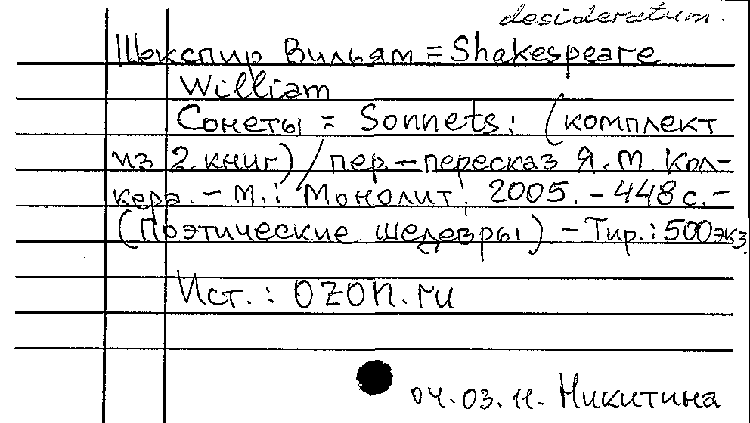 desideratum.
Шекспир Вильям = Shakespeare
William
Сонеты = Sonnets: (комплект
из 2 книг) / пер.-пересказ Я.М Кол-
кера. - М.: Монолит 2005. - 448 с. -
(Поэтические шедевры) - Тир.: 500 экз.
Ист.: OZON.ru
04.03.11. Никитина